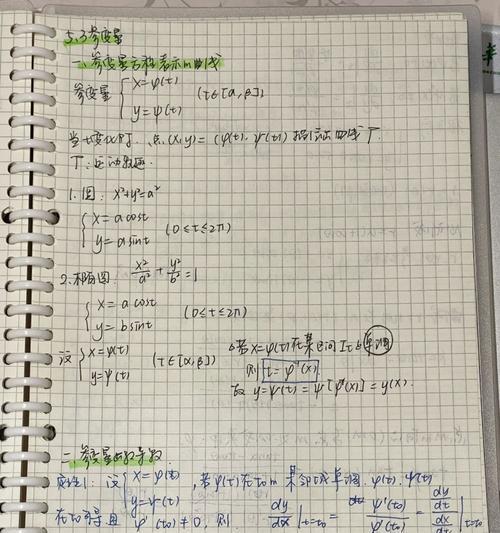 5.3 参变量
一、参变量方程表示的曲线
参变量 { x=φ(t)
y=ψ(t) (t∈[α,β])
当t变化时, 点(x,y)=(φ(t), ψ(t)) 描绘出曲线 Γ.
Γ: 运动轨迹.
1. 圆: x²+y²=a²
{ x=a cost
y=a sint (0≤t≤2π)
2. 椭圆: x²/a² + y²/b² = 1
{ x=a cost
y=b sint (0≤t≤2π)
设 { x=φ(t)
y=ψ(t) (t∈[α,β])
若 x=φ(t) 在某区间 I 上 单调
则 t=φ⁻¹(x)
故 y=ψ(t)=ψ[φ⁻¹(x)]=y(x).
二、参变量函数的导数
定理1: 设 { x=φ(t)
y=ψ(t) , 若φ(t)在t₀的某邻域单调, φ(t), ψ(t)
在t₀可导且 φ'(t₀)≠0, 则 dy/dx |t=t₀ = ψ'(t₀)/φ'(t₀) = dy/dt / dx/dt |t=t₀